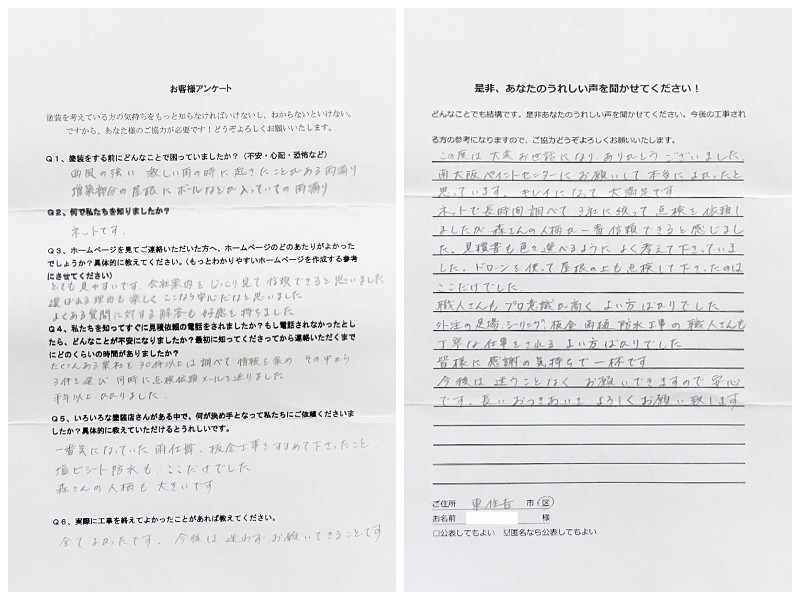 お客様アンケート
塗装を考えている方の気持ちをもっと知らなければいけないし、わからないといけない。
ですから、あなた様のご協力が必要です！どうぞよろしくお願いいたします。
Q１、塗装をする前にどんなことで困っていましたか？（不安・心配・恐怖など）
西風の強い 激しい雨の時に起きたことがある雨漏り
増築部分の屋根にボールなどが入っていての雨漏り
Q２、何で私たちを知りましたか？
ネットです。
Q３、ホームページを見てご連絡いただいた方へ、ホームページのどのあたりがよかった
でしょうか？具体的に教えてください。（もっとわかりやすいホームページを作成する参考
にさせてください）
とても見やすいです。会社案内をじっくり見て信頼できると思いました
選ばれる理由も楽しく ここなら安心だなと思いました
よくある質問に対する解答も好感を持ちました
Q４、私たちを知ってすぐに見積依頼の電話をされましたか？もし電話されなかったとし
たら、どんなことが不安になりましたか？最初に知ってくださってから連絡いただくまで
にどのくらいの時間がありましたか？
たくさんある業者を30件以上は調べて情報を集め、その中から
3件を選び 同時に点検依頼メールを送りました
半月以上かかりました
Q５、いろいろな塗装店さんがある中で、何が決め手となって私たちにご依頼くださいま
したか？具体的に教えていただけるとうれしいです。
一番気になっていた雨仕舞、板金工事をすすめて下さったこと
塩ビシート防水も、ここだけでした
森さんの人柄も大きいです
Q６、実際に工事を終えてよかったことがあれば教えてください。
全てよかったです。今後は迷わずお願いできることです
是非、あなたのうれしい声を聞かせてください！
どんなことでも結構です。是非あなたのうれしい声を聞かせてください。今後の工事され
る方の参考になりますので、ご協力どうぞよろしくお願いいたします。
この度は大変お世話になり、ありがとうございました
南大阪ペイントセンターにお願いして本当によかったと
思っています。キレイになって大満足です
ネットで長時間調べて 3社に絞って点検を依頼し
ましたが森さんの人柄が一番信頼できると感じまし
た。見積書も色々選べるようによく考えて下さっていま
した。ドローンを使って屋根の上も点検して下さったのは
ここだけでした
職人さんもプロ意識が高く よい方ばかりでした
外注の足場、シーリング、板金 雨樋 防水工事の職人さんも
丁寧な仕事をされる よい方ばかりでした
皆様に感謝の気持ちで一杯です
今後は迷うことなく お願いできますので安心
です。長いおつきあいをよろしくお願い致します
ご住所 東住吉 市・区
お名前 様
□公表してもよい ☑匿名なら公表してもよい